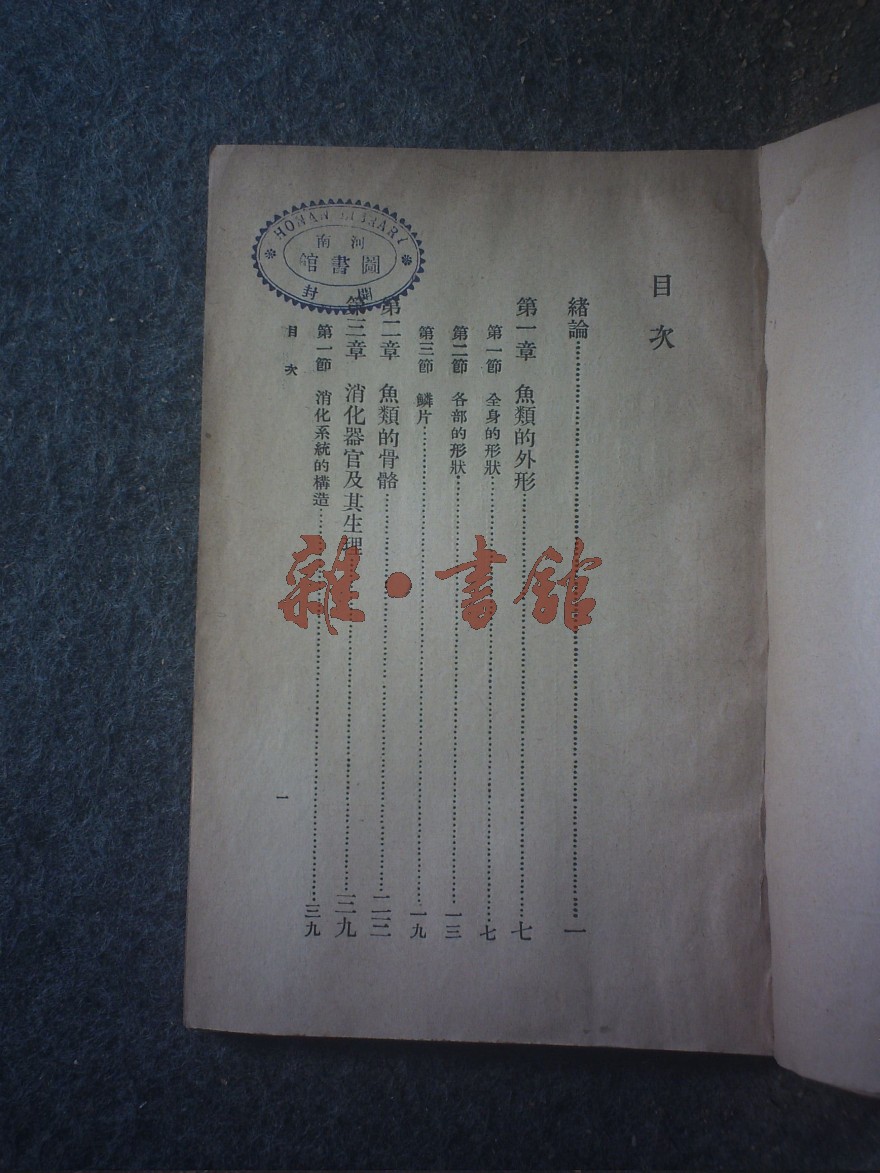 目次
緒論……一
第一章 魚類的外形……七
第一節 全身的形狀……七
第二節 各部的形狀……一三
第三節 鱗片……一九
第二章 魚類的骨骼……二二
第三章 消化器官及其生理……三九
第一節 消化系統的構造……三九
目次
一
HONAN LIBRARY
河南
圖書館
開封
雜·書館